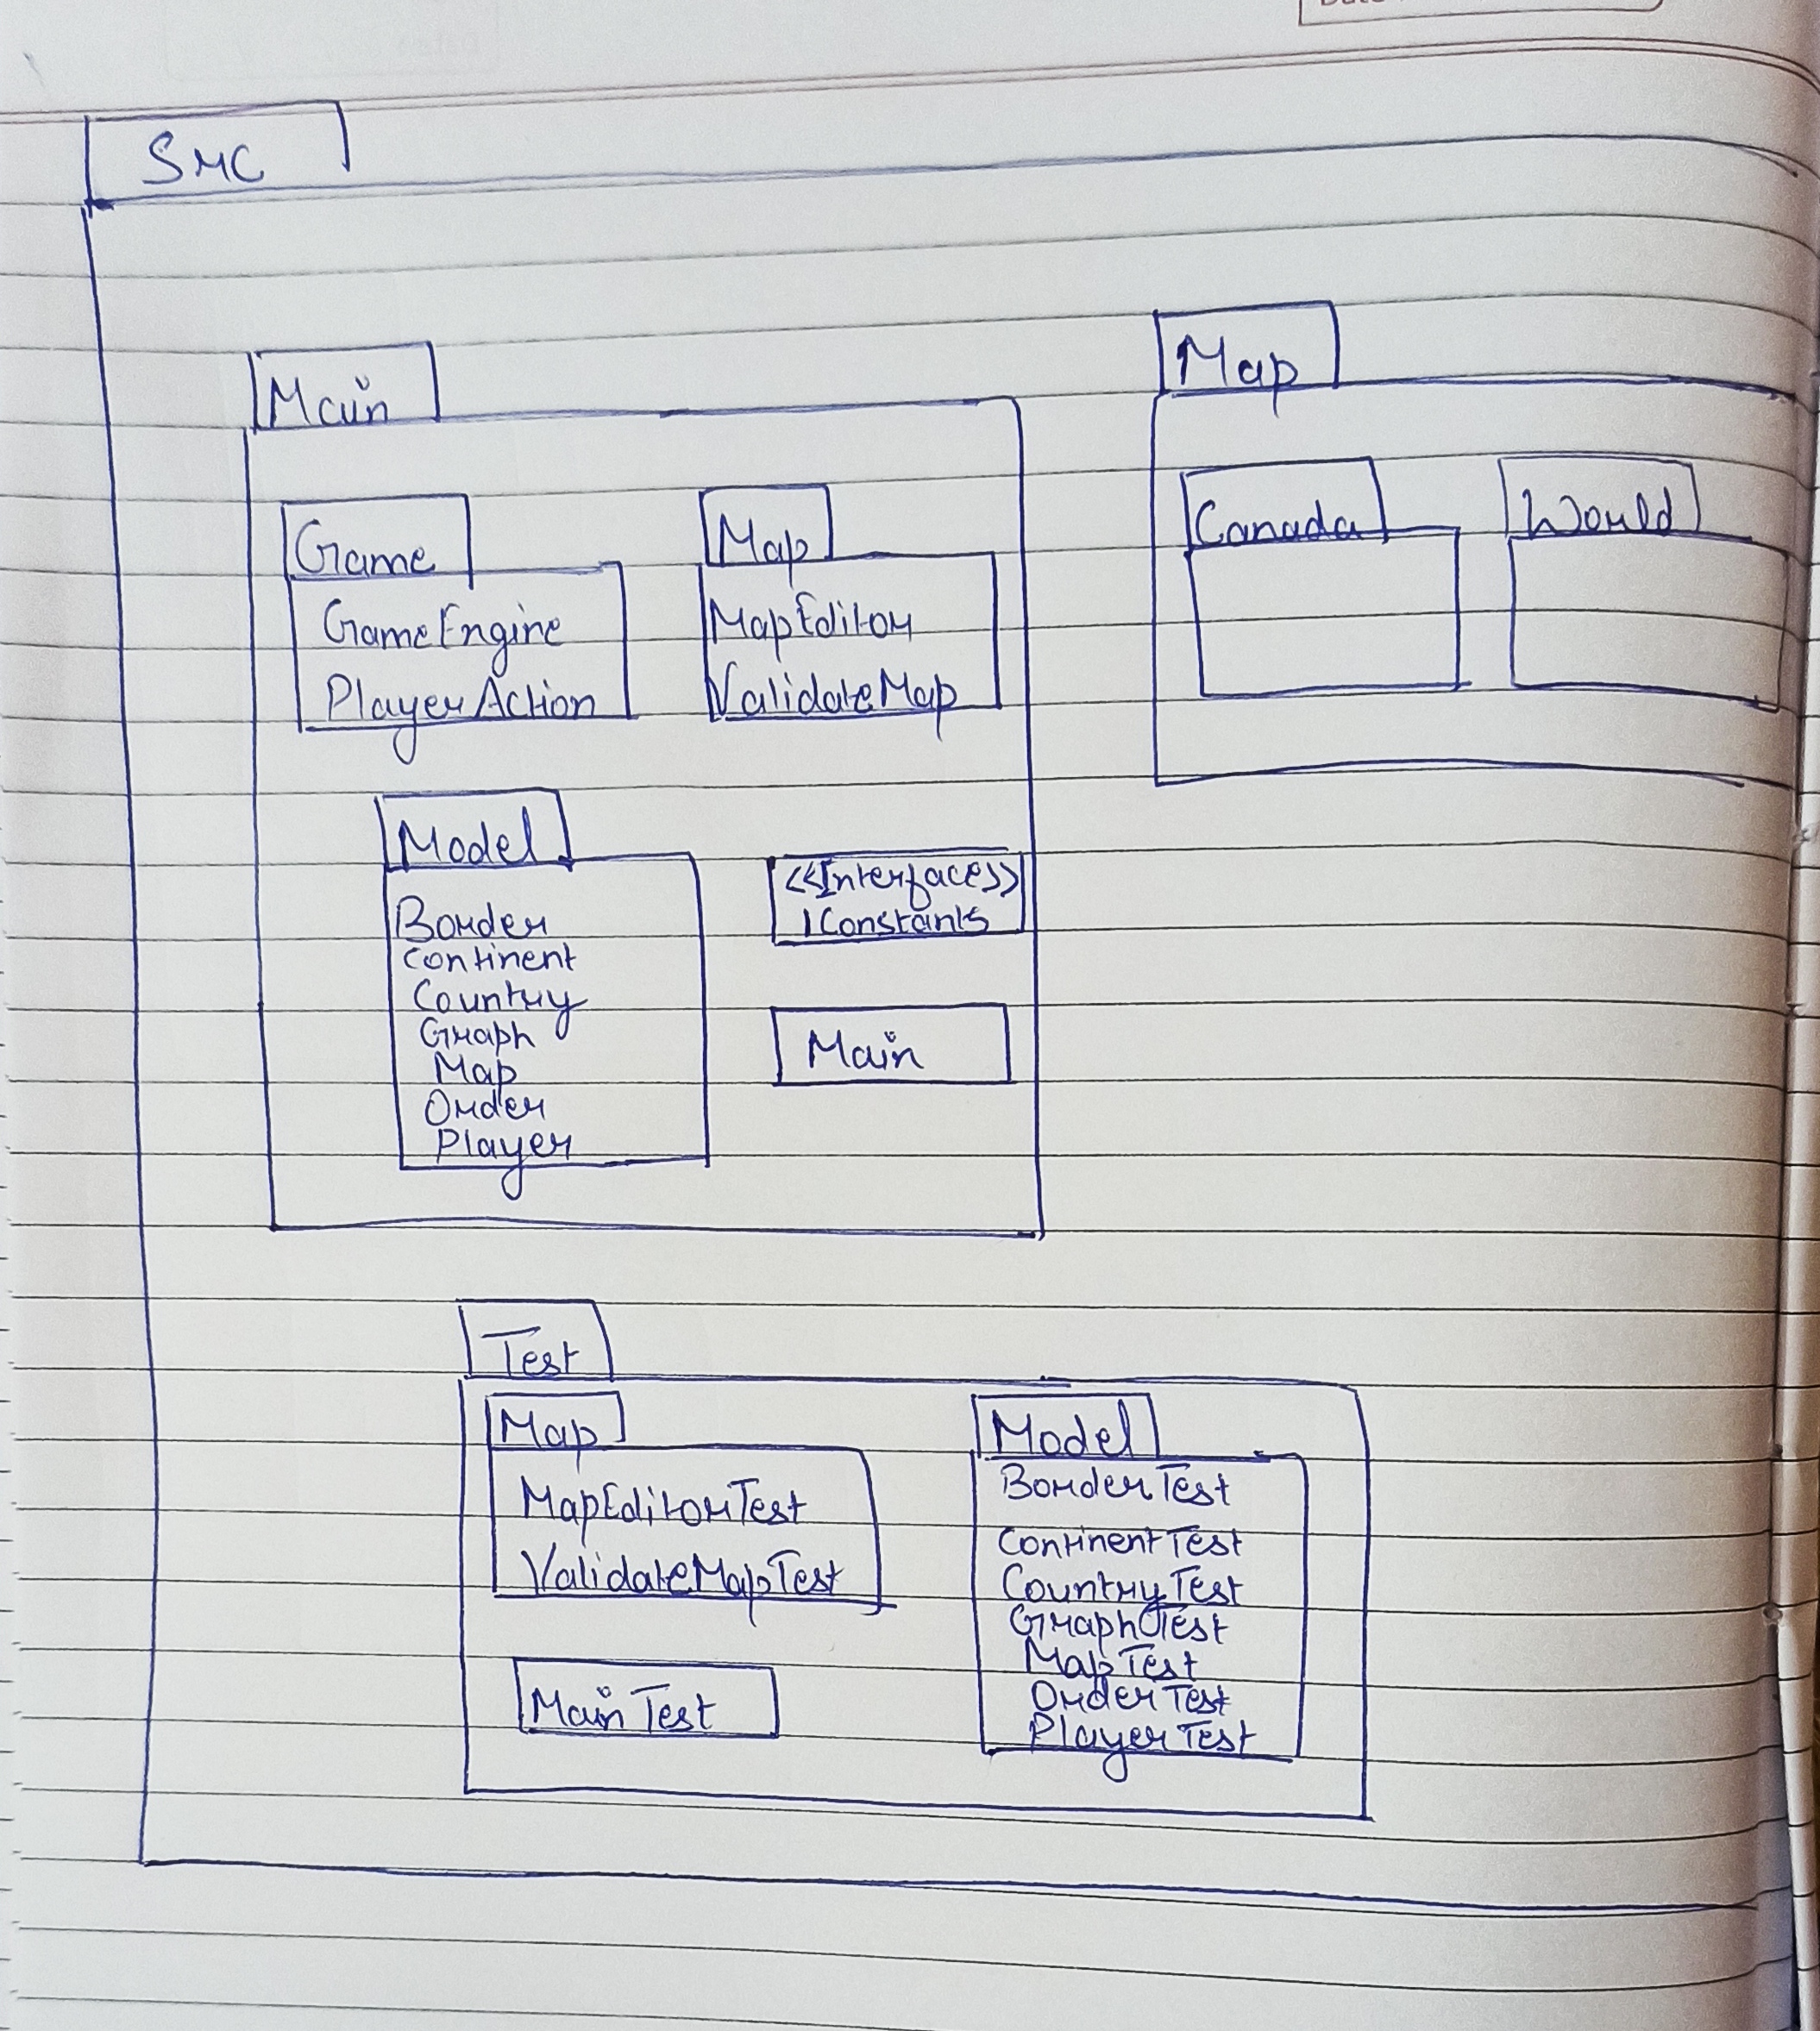 Src
Main
Game
GameEngine
PlayerAction
Map
MapEditor
ValidateMap
Model
Border
Continent
Country
Graph
Map
Order
Player
<<Interfaces>>
IConstants
Main
Map
Canada
World
Test
Map
MapEditorTest
ValidateMapTest
MainTest
Model
BorderTest
ContinentTest
CountryTest
GraphTest
MapTest
OrderTest
PlayerTest